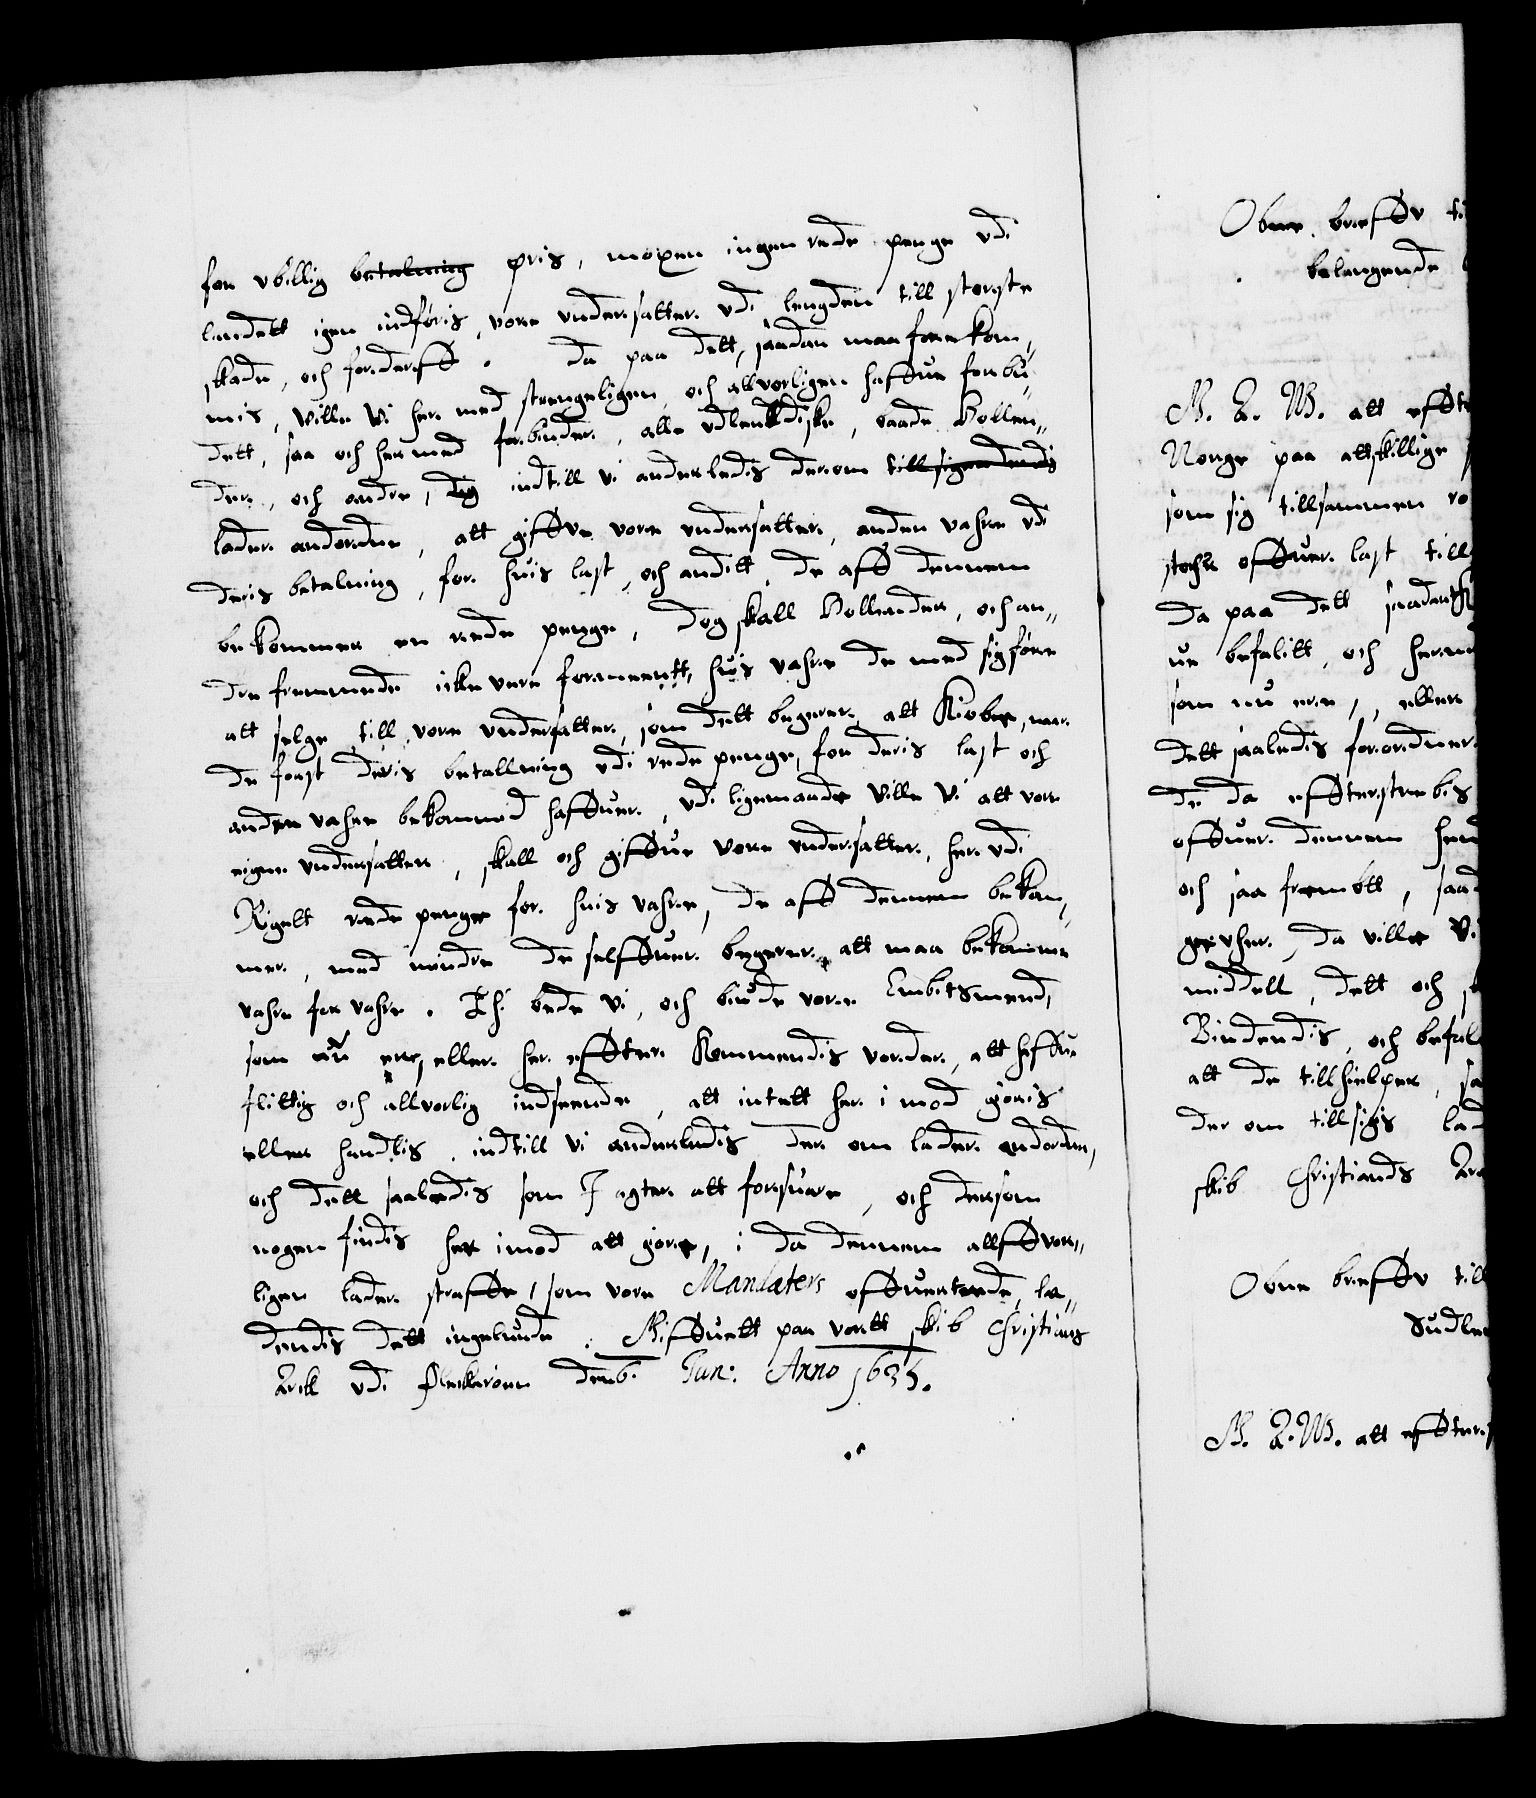 for vbillig betalning pris, moxen ingen rede penge vdi
landett igen indføris, vore vndersatter vdi lengden till storste
skade, och forderff. da paa dett, saadan maa forekom,,
mis, Ville Vi her med strengeligen, och allvorligen haffue forbu,,
dett, saa och hermed forbinder, alle vdlendiske, baade Hollen,,
der, och andre, indtill Vi anderledis derom till sigendendis
lader anordne, att giffue vore vndersatter, anden vahre vdi
deris betalning, for huis last, och anditt, de aff dennem
bekommer en rede penge, dog skall Hollender, och an,,
dre fremmede icke vere formeentt, huis vahre de med sig føre
att selge till vore vndersatter, som dett begerer att Kiobe, naar
de forst deris betallning vdi rede penge, for deris last och
anden vahre bekommed haffuer, vdi ligemaade Ville Vi att vore
eigne vndersatter, skall och giffue Vore vndersatter, her vdi
Rigett rede penge for huis vahre, de aff dennem bekom,,
mer, med mindre de selffuer begerer att maa bekomme
vahre for vahre. Thi bede Vi, och biude vore Embitsmend,
som nu ere, eller her effter Kommendis vorder, att haffue
flittig och allvorlig indseende, att intett her i mod gøris
eller handlis, indtill Vi anderledis der om lader andorden,
och dett saaledis som I agter att forsuare, och dersom
nogen findis her imod att giore, i da dennem allffvor,,
ligen lader straffe, som vore Mandaters offuertrede, la,,
dendis dett ingelunde. Giffuett paa vortt skib Christians
Arck vdi Fleckerøen den 6. Jun: Anno 1635.
Obne breffv
belangende
G. A. W. att effte
Norge paa attskillige
som sig tillsammen ro
offuer last till
da paa dett saadant
ue befalitt, och herm
som nu ere, eller
dett saaledis forordner
de da effterstrebis
offuer dennem hend
och saa frembtt, saad
da ville Vi
middell, dett och
Bindendis, och befal
att de tillhielper, sa
der om tillsigis lad
skib Christiands Arc
Obne breffv till
Sudle
G. A. W. att effter